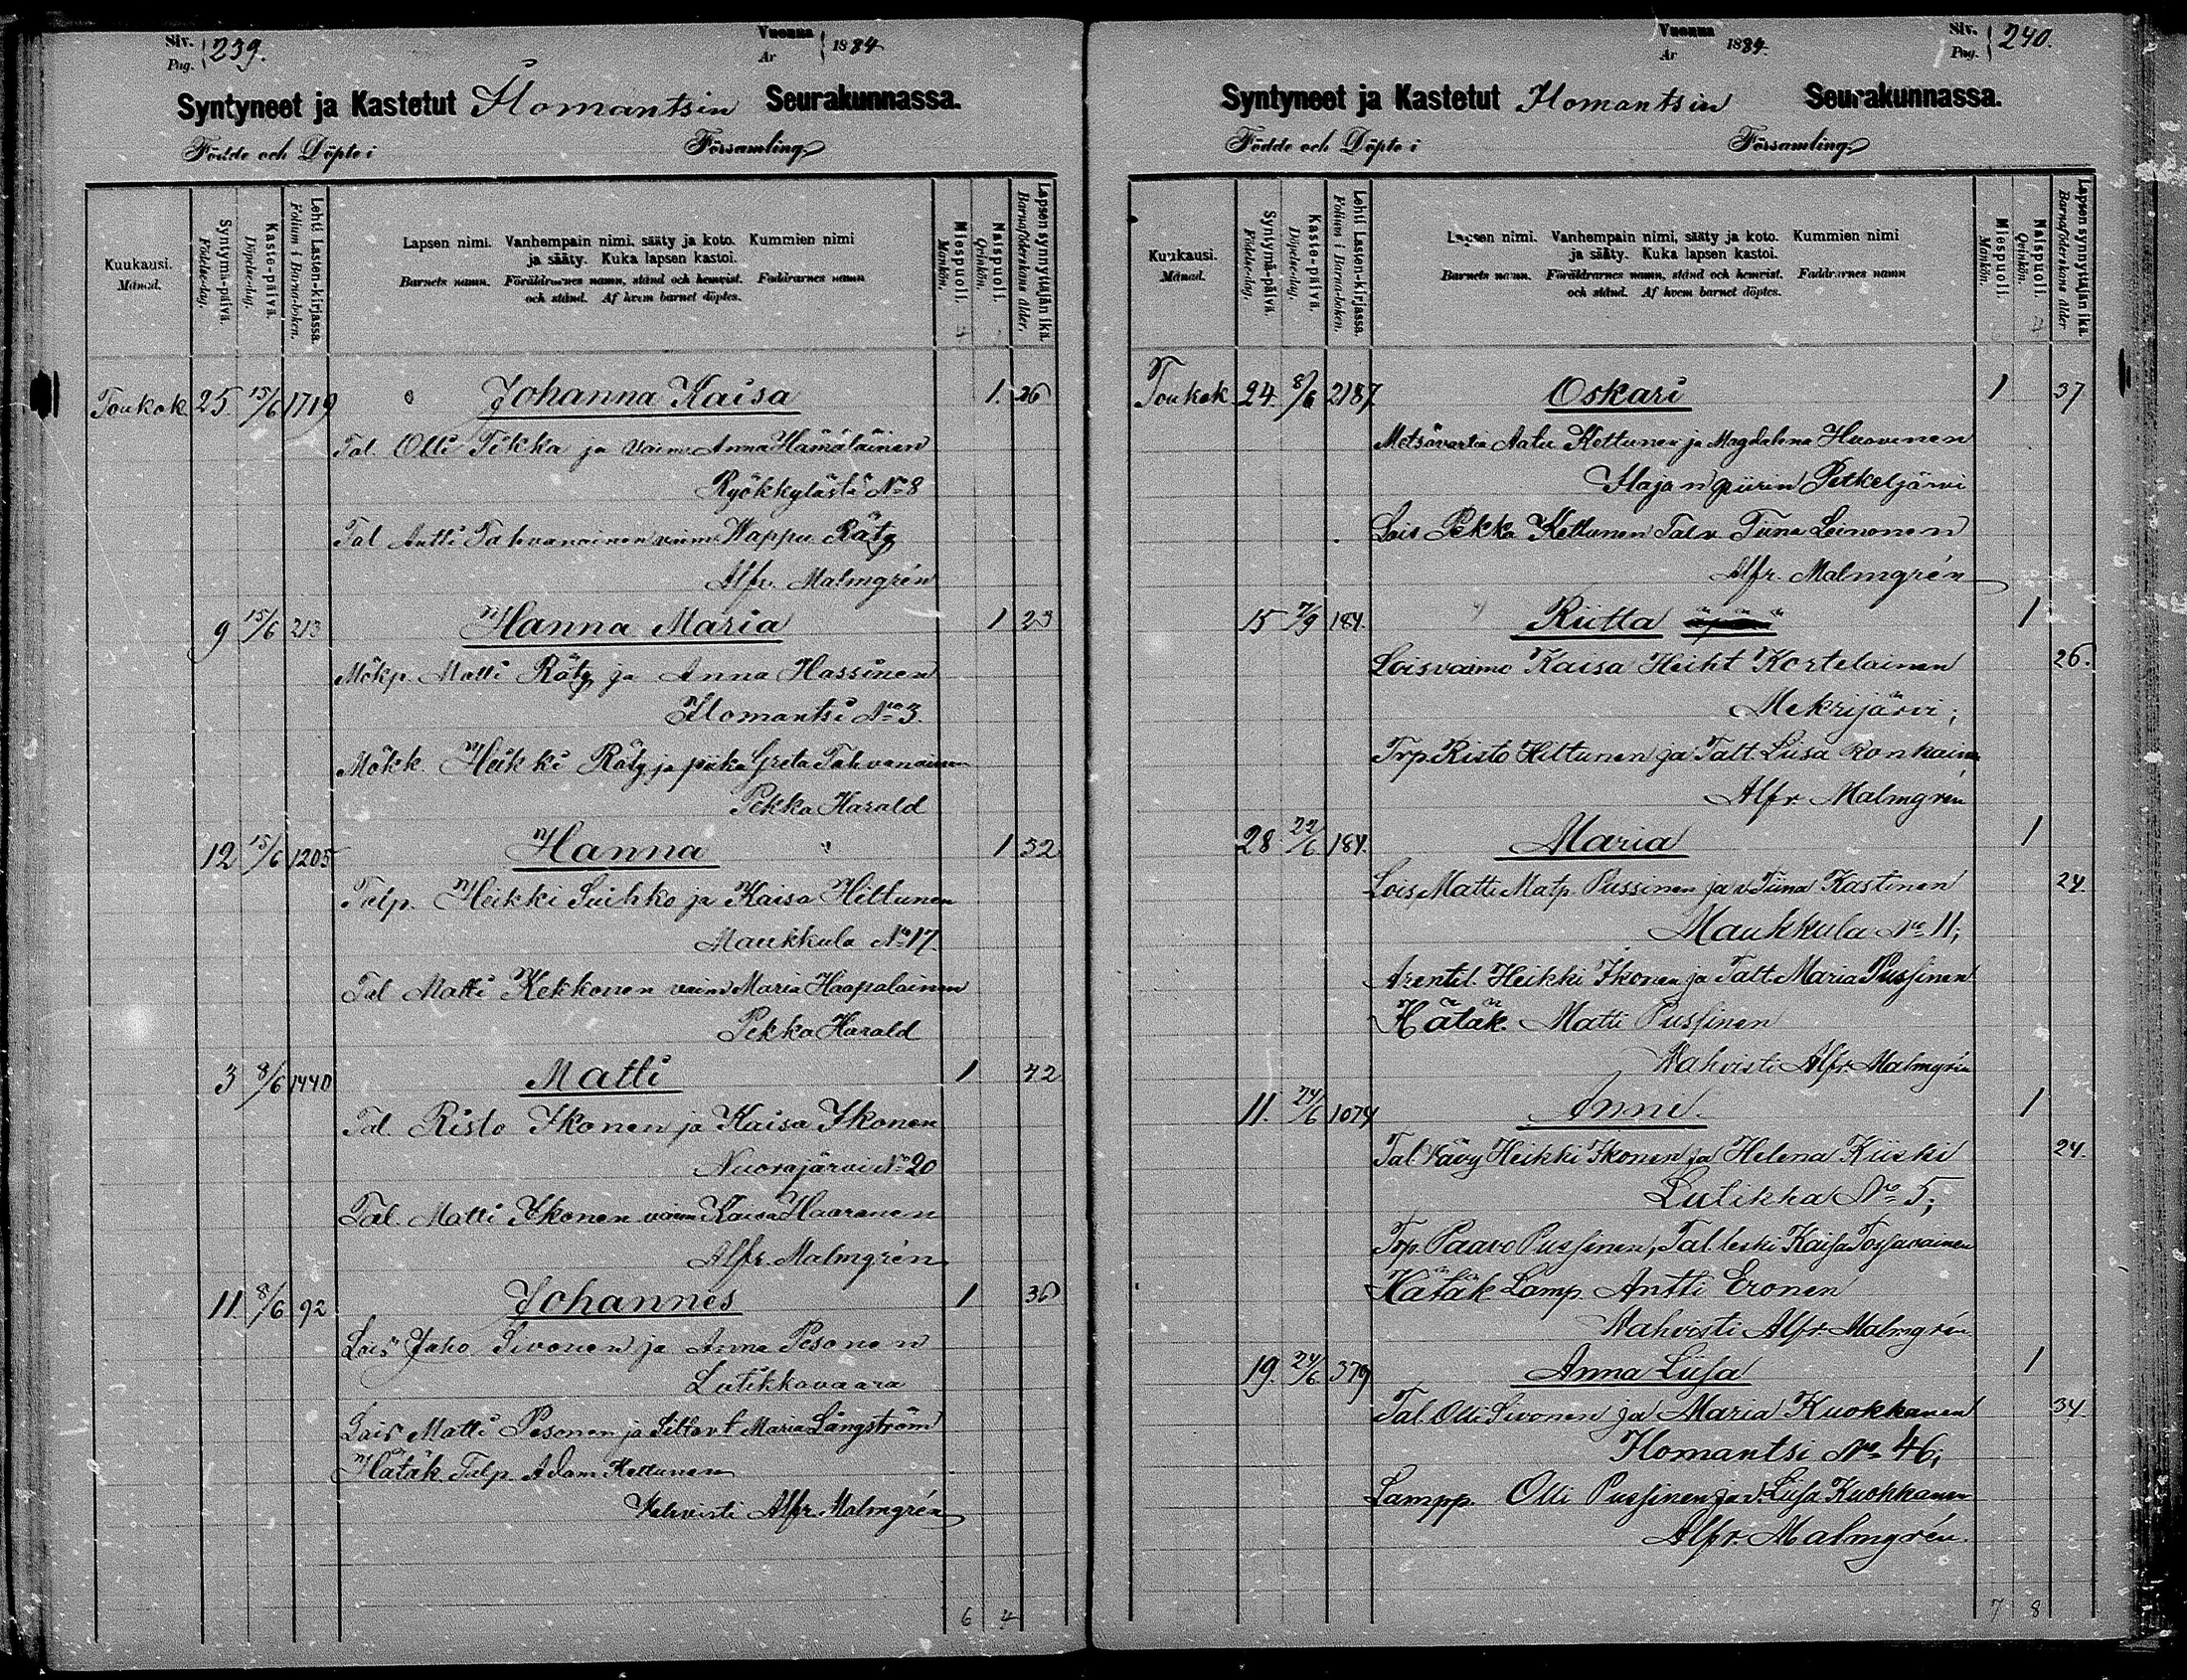 Siv. Pag. 239. Vuonna År 1884
Syntyneet ja Kastetut Ilomantsin Seurakunnassa.
Födde och Döpte i Församling
Kuukausi. Månad.
Syntymä-päivä. Födelse-dag.
Kaste-päivä. Döpelse-dag.
Lehti Lasten-kirjassa. Folium i Barna-boken.
Lapsen nimi. Vanhempain nimi, sääty ja koto. Kummien nimi
ja sääty. Kuka lapsen kastoi.
Barnets namn. Föräldrarnes namn, stånd och hemvist. Faddrarnes namn
och stånd. Af hvem barnet döptes.
Miespuoli. Mankön.
Naispuoli. Qvinkön.
Lapsen synnyttäjän ikä. Barnaföderskans ålder.
Toukok 25. 15/6 1719 Johanna Kaisa 1. 26
Tal. Olli Tikka ja vaimo Anna Hämäläinen
Ryökkylästä No 8
Tal Antti Tahvanainen vaimo Wappu Räty
Alfr. Malmgrén
9 15/6 213 Hanna Maria 1 23
Mökp. Matti Räty ja Anna Hassinen
Ilomantsi No 3.
Mökk. Heikki Räty ja piika Greta Tahvanainen
Pekka Harald
12 15/6 1205 Hanna 1 32
Talp. Heikki Suihko ja Kaisa Hiltunen
Maukkula No 17
Tal Matti Kekkonen vaimo Maria Haapalainen
Pekka Harald
3 8/6 1440 Matti 1 42
Tal. Risto Ikonen ja Kaisa Ikonen
Nuorajärvi No 20
Tal. Matti Ikonen vaim Kaisa Haaranen
Alfr. Malmgrén
11. 8/6 92 Johannes 1 36
Lois Juho Sivonen ja Anna Pesonen
Lutikkavaara
Lois Matti Pesonen ja Siltav t Maria Långström
Hätäk. Talp. Adam Kettunen
Wahvisti Alfr. Malmgrén
6 4
Vuonna År 1884. Siv. Pag. 240.
Syntyneet ja Kastetut Ilomantsin Seurakunnassa.
Födde och Döpte i Församling
Kuukausi. Månad.
Syntymä-päivä. Födelse-dag.
Kaste-päivä. Döpelse-dag.
Lehti Lasten-kirjassa. Folium i Barna-boken.
Lapsen nimi. Vanhempain nimi, sääty ja koto. Kummien nimi
ja sääty. Kuka lapsen kastoi.
Barnets namn. Föräldrarnes namn, stånd och hemvist. Faddrarnes namn
och stånd. Af hvem barnet döptes.
Miespuoli. Mankön.
Naispuoli. Qvinkön.
Lapsen synnyttäjän ikä. Barnaföderskans ålder
Toukok 24. 8/6 2187 Oskari 1 37
Metsävartia Aatu Kettunen ja Magdalena Huovinen
piirin Petkeljärvi
Lois Pekka Kettunen Tal v Tiina Leinonen
Alfr. Malmgrén
15 7/9 184. Riitta 1
Loisvaimo Kaisa Heikt Kortelainen 26.
Mekrijärvi;
Trp. Risto Hiltunen ja Talt Liisa Ronkain
Alfr. Malmgrén
28 22/6 184. Maria 1
Lois Matti Matp. Pussinen ja v. Tiina Kastinen 24.
Maukkula No 11;
Arentil. Heikki Ikonen ja Talt. Maria Pussinen
Hätäk. Matti Pussinen
Wahvisti Alfr. Malmgrén
11. 24/6 1074 Anni. 1
Tal. vävy Heikki Ikonen ja Helena Kiiski 24.
Lutikka No 5;
Trp. Paavo Pussinen, Tal. leski Kaisa Tossavainen
Hätäk Lamp. Antti Eronen
Wahvisti Alfr. Malmgrén.
19. 24/6 379 Anna Liisa 1
Tal. Olli Sivonen ja Maria Kuokkanen 34.
Ilomantsi No 46;
Lampp. Olli Pussinen ja v. Liisa Kuokkanen
Alfr. Malmgrén.
7 8